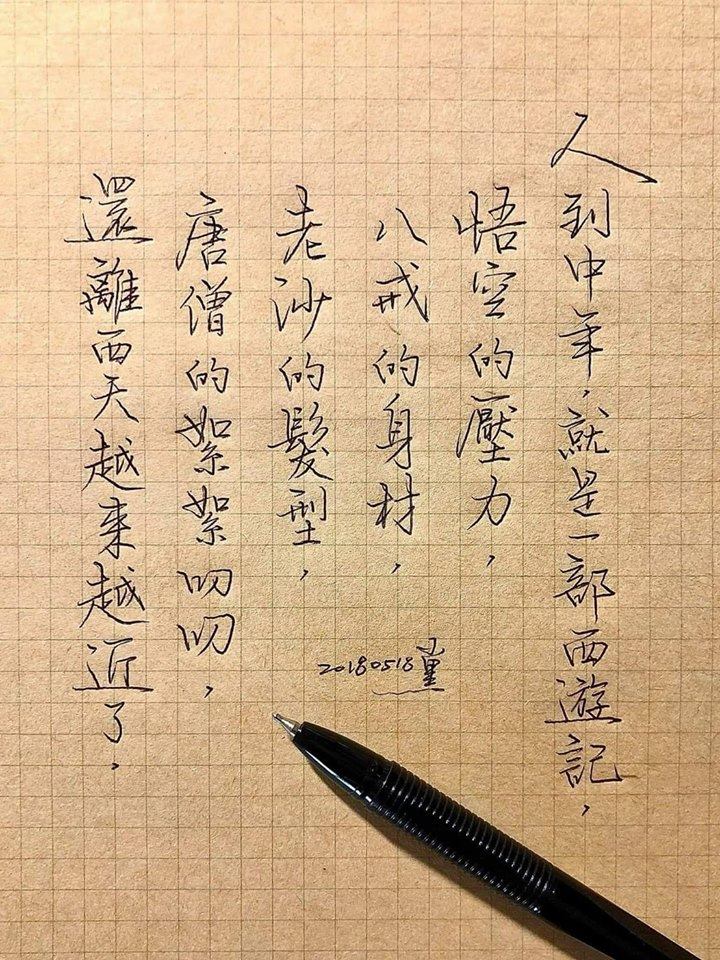 人到中年，就是一部西遊記，
悟空的壓力，
八戒的身材，
老沙的髮型，
唐僧的絮絮叨叨，
還離西天越来越近了，
20180518